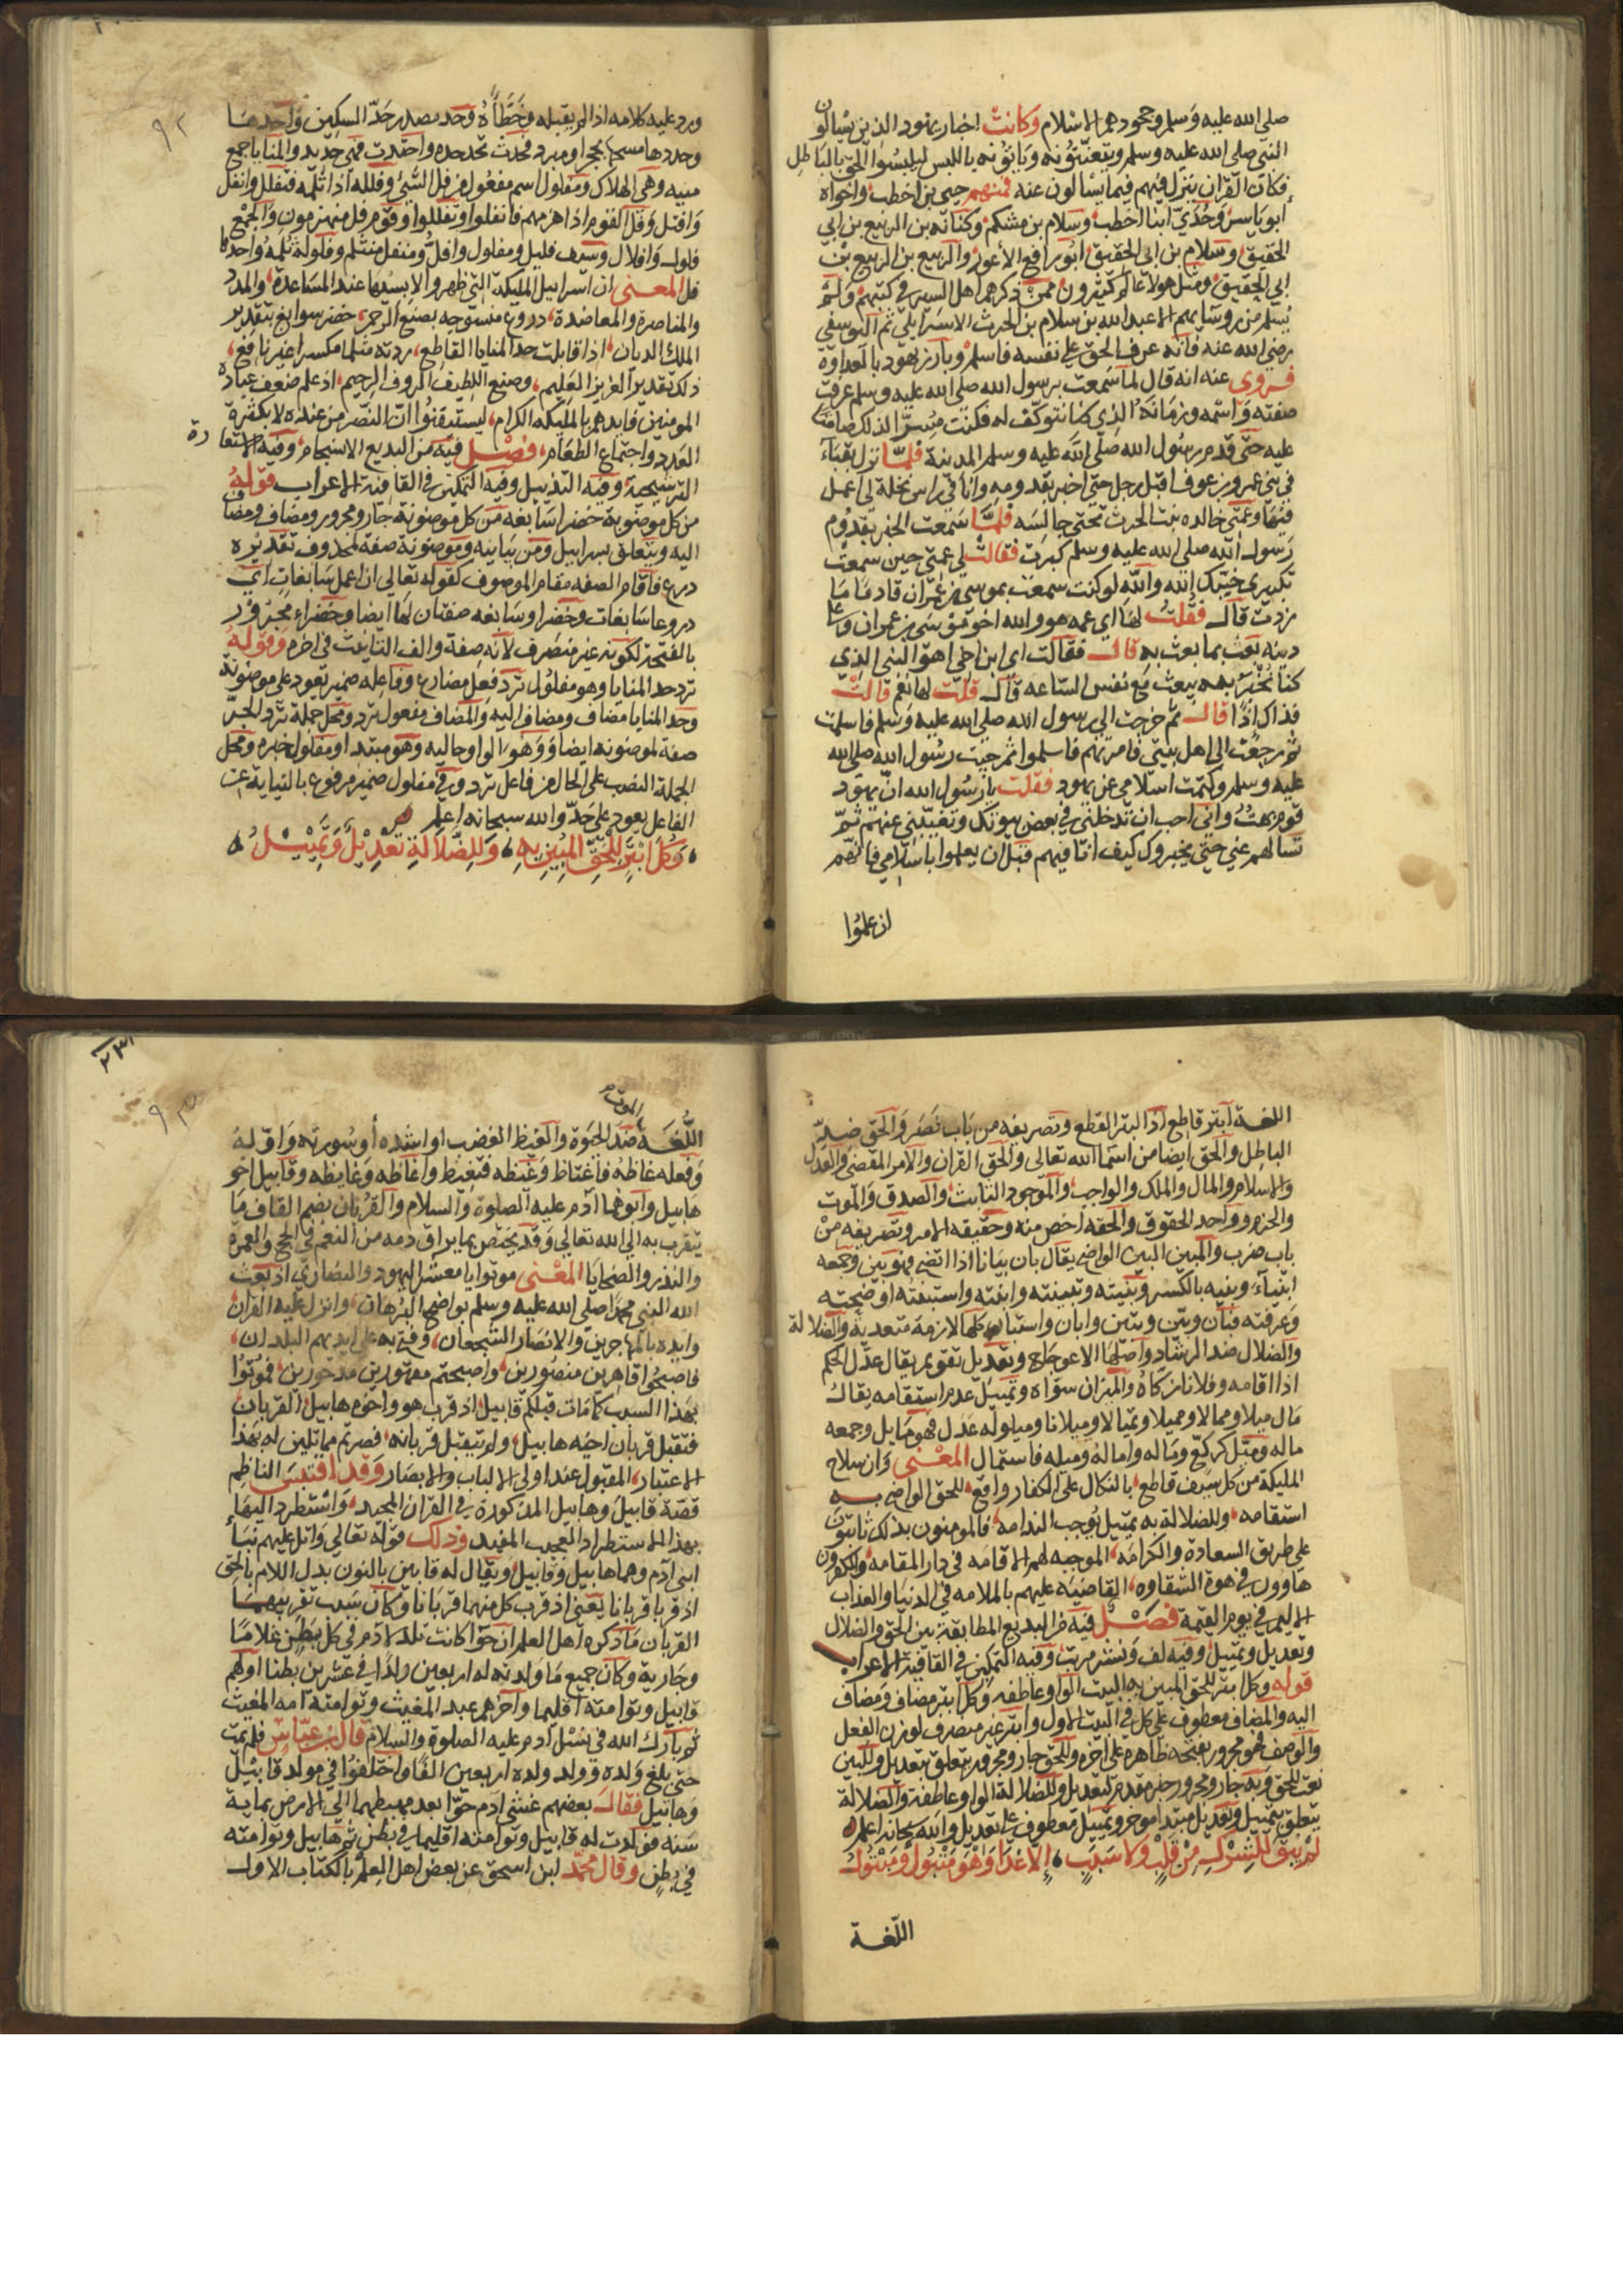 صلى الله عليه وسلم وجحودهم الاسلام وكانت احبار يهود الذين يسالون
النبي صلى الله عليه وسلم ويتعنتونه وياتونه باللبس ليلبسوا الحق بالباطل
فكان القران ينزل فيهم فيما يسالون عنه فمنهم حيي بن اخطب واخواه
أبو ياسر وجدي ابنا اخطب وسلام بن مشكم وكنانه بن الربيع بن ابي
الحقيق وسلام بن ابي الحقيق ابو رافع الأعور والربيع بن الربيع بن
ابي الحقيق ومثل هولا عالم كثيرون ممن ذكرهم اهل السير في كتبهم ولم
يسلم من روسايهم الا عبد الله بن سلام بن الحرث الاسرايلي ثم اليوسفي
رضي الله عنه فانه عرف الحق على نفسه فاسلم وبارز يهود بالعداوة
فروي عنه انه قال لما سمعت برسول الله صلى الله عليه وسلم عرفت
صفته واسمه وزمانه الذي كنا نتوكف له فكنت مسرا لذلك صامتا
عليه حتى قدم رسول الله صلى الله عليه وسلم المدينة فلما نزل بقباء
في بني عمرو بن عوف اقبل رجل حتى اخبر بقدومه وانا في راس نخلة لي اعمل
فيها وعمتي خالده بنت الحرث تحتي جالسه فلما سمعت الخبر بقدوم
رسول الله صلى الله عليه وسلم كبرت فقالت لي عمتي حين سمعت
تكبيري خيبك الله والله لو كنت سمعت بموسى بن عمران قادما ما
زدت قال فقلت لها اي عمه هو والله اخو موسى بن عمران وعلى
دينه بعث بما بعث به قال فقالت اي ابن اخي اهو النبي الذي
كنا نخبر به يبعث مع نفس الساعه قال قلت لها نعم قالت
فذاك اذا قال ثم خرجت الى رسول الله صلى الله عليه وسلم فاسلمت
ثم رجعت الى اهل بيتي فامرتهم فاسلموا ثم جيت رسول الله صلى الله
عليه وسلم وكتمت اسلامي عن يهود فقلت يا رسول الله ان يهود
قوم بهت واني احب ان تدخلني في بعض بيوتك وتغيبني عنهم ثم
تسالهم عني حتى يخبروك كيف انا فيهم قبل ان يعلموا باسلامي فانهم
ان علموا
٩٢
ورد عليه كلامه اذا لم يقبله وخطأه وحد مصدر حد السكين واحدها
وحددها مسحها بحجر او مبرد فحدت تحد حده واحتدت فهي حديد والمنايا جمع
منيه وهي الهلاك ومفلول اسم مفعول من فل الشيء وفلله اذا ثلمه فتفلل وانفل
وافتل وفل القوم اذا هزمهم فانفلوا وتفللوا وقوم فل منهزمون والجمع
فلول وافلال وسيف فليل ومفلول وافل ومنفل منثلم وفلوله ثلمه واحدها
فل المعنى ان اسرابيل المليكة التي ظهروا لابسيها عند المساعدة والمدد
والمناصرة والمعاضدة دروع منسوجه بصنع الرحمن خضر سوابغ بتقدير
الملك الديان اذا قابلت حد المنايا القاطع ردته مثلما مكسرا غير نافع
ذلك تقدير العزيز العليم وصنع اللطيف الروف الرحيم اذ علم ضعف عباده
المومنين فايدهم بالمليكه الكرام ليستيقنوا ان النصر من عنده لا بكثرة
العدد واجتماع الطغام فصل فيه من البديع الانسجام وفيه الاستعارة
الترشيحية وفيه التذييل وفيه التمكين في القافية الاعراب قوله
من كل موضونة خضرا سابغه من كل موضونة جار ومجرور ومضاف ومضاف
اليه ويتعلق بسرابيل ومن بيانيه وموضونة صفة لمحذوف تقديره
درع فاقام الصفه مقام الموصوف كقوله تعالى ان اعمل سابغات اي
دروعا سابغات وخضرا وسابغه صفتان لها ايضا وخضراء مجرور
بالفتحة لكونه غير منصرف لانه صفة والف التانيث في اخره وقوله
ترد حد المنايا وهو مفلول ترد فعل مضارع وفاعله ضمير يعود على موضونة
وحد المنايا مضاف ومضاف اليه والمضاف مفعول ترد ومحل جملة ترد الجر
صفة لموضونه ايضا وهو الواو حاليه وهو مبتدا ومفلول خبره ومحل
الجملة النصب على الحال من فاعل ترد وفي مفلول ضمير مرفوع بالنيابة عن
الفاعل يعود على حد والله سبحانه اعلم
وكل ابتر للحق المبين به وللضلالة تعديل وتمييل
اللغة ابتر قاطع اذ البتر القطع وتصريفه من باب نصر والحق ضد
الباطل والحق ايضا من اسما الله تعالى والحق القران والامر المقضي والعدل
والاسلام والمال والملك والواجب والموجود الثابت والصدق والموت
والحزم وواحد الحقوق والحقه اخص منه وحقيقه الامر وتصريفه من
باب ضرب والمبين البين الواضح يقال بان بيانا اذا اتضح فهو بين وجمعه
ابيناء وبنيه بالكسر وبينته وتبينته وابنته واستبنته اوضحته
وعرفته فبان وبين وتبين وابان واستبان كلها لازمة متعدية والضلالة
والضلال ضد الرشاد واصلها الاعوجاج وتعديل تقويم يقال عدل الحكم
اذا اقامه وفلانا زكاه والميزان سواه وتمييل عدم استقامه يقال
مال ميلا وممالا ومميلا وتميالا وميلانا وميلوله عدل فهو مايل وجمعه
ماله وميل كركع وماله واماله وميله فاستمال المعنى وان سلاح
المليكة من كل سيف قاطع بالنكال على الكفار واقع للحق الواضح به
استقامه وللضلالة به تمييل يوجب الندامه فالمومنون بذلك ثابتون
على طريق السعادة والكرامه الموجبه لهم الاقامه في دار المقامه والكفرون
هاوون في هوة الشقاوه القاضيه عليهم بالملامه في الدنيا والعذاب
الاليم في يوم القيمة فصل فيه من البديع المطابقة بين الحق والضلال
وتعديل وتمييل وفيه لف ونشر مرتب وفيه التمكين في القافية الاعراب
قوله وكل ابتر للحق المبين به البيت الواو عاطفه وكل ابتر مضاف ومضاف
اليه والمضاف معطوف على كل في البيت الاول وابتر غير منصرف لوزن الفعل
والوصف فهو مجرور بفتحه ظاهره على اخره وللحق جار ومجرور يتعلق بتعديل والمبين
نعت للحق وبه جار ومجرور خبر مقدم لتعديل وللضلالة الواو عاطفة وللضلالة
يتعلق بتمييل وتعديل مبتدا موخر وتمييل معطوف على تعديل والله سبحانه اعلم
لم يبق للشرك من قلب ولا سبب إلا غدا وهو متبول ومبتول
اللغة
٩٣
الموت
اللغة ضد الحيوة والغيظ الغضب او اشده أو سورته واوله
وفعله غاظه فاغتاظ وغيظه فتغيظ واغاظه وغايظه وقابيل اخو
هابيل وابوهما ادم عليه الصلوة والسلام والقربان بضم القاف ما
يتقرب به الى الله تعالى وقد يختص بما يراق دمه من النعم في الحج والعمرة
والنذر والضحايا المعنى موتوا يا معشر اليهود والنصارى اذ بعث
الله النبي محمدا صلى الله عليه وسلم بواضح البرهان وانزل عليه القران
وايده بالمهاجرين والانصار الشجعان وفتح به على ايديهم البلدان
فاصبحوا قاهرين منصورين واصبحتم مقهورين مدحورين فموتوا
بهذا السبب كما مات قبلكم قابيل اذ قرب هو واخوه هابيل القربان
فتقبل قربان اخيه هابيل ولم يتقبل قربانه فصرتم مماثلين له بهذا
الاعتبار المقبول عند اولي الالباب والابصار وقد اقتبس الناظم
قصة قابيل وهابيل المذكورة في القران المجيد واستطرد اليها
بهذا الاستطراد العجيب المفيد وذلك قوله تعالى واتل عليهم نبأ
ابني آدم وهما هابيل وقابيل ويقال له قابين بالنون بدل اللام بالحق
اذ قربا قربانا يعني اذ قرب كل منهما قربانا وكان سبب تقريبهما
القربان ما ذكره اهل العلم ان حوا كانت تلد لادم في كل بطن غلاما
وجارية وكان جميع ما ولدته له اربعين ولدا في عشرين بطنا اولهم
قابيل وتوامته اقليما وآخرهم عبد المغيث وتوامته امه المغيث
ثم بارك الله في نسل ادم عليه الصلوة والسلام قال ابن عباس فلم يمت
حتى بلغ ولده وولد ولده اربعين الفا واختلفوا في مولد قابيل
وهابيل فقال بعضهم غشي آدم حوا بعد مهبطهما الى الارض بماية
سنه فولدت له قابيل وتوامته اقليما في بطن ثم هابيل وتوامته
في بطن وقال محمد ابن اسحق عن بعض اهل العلم بالكتاب الاول